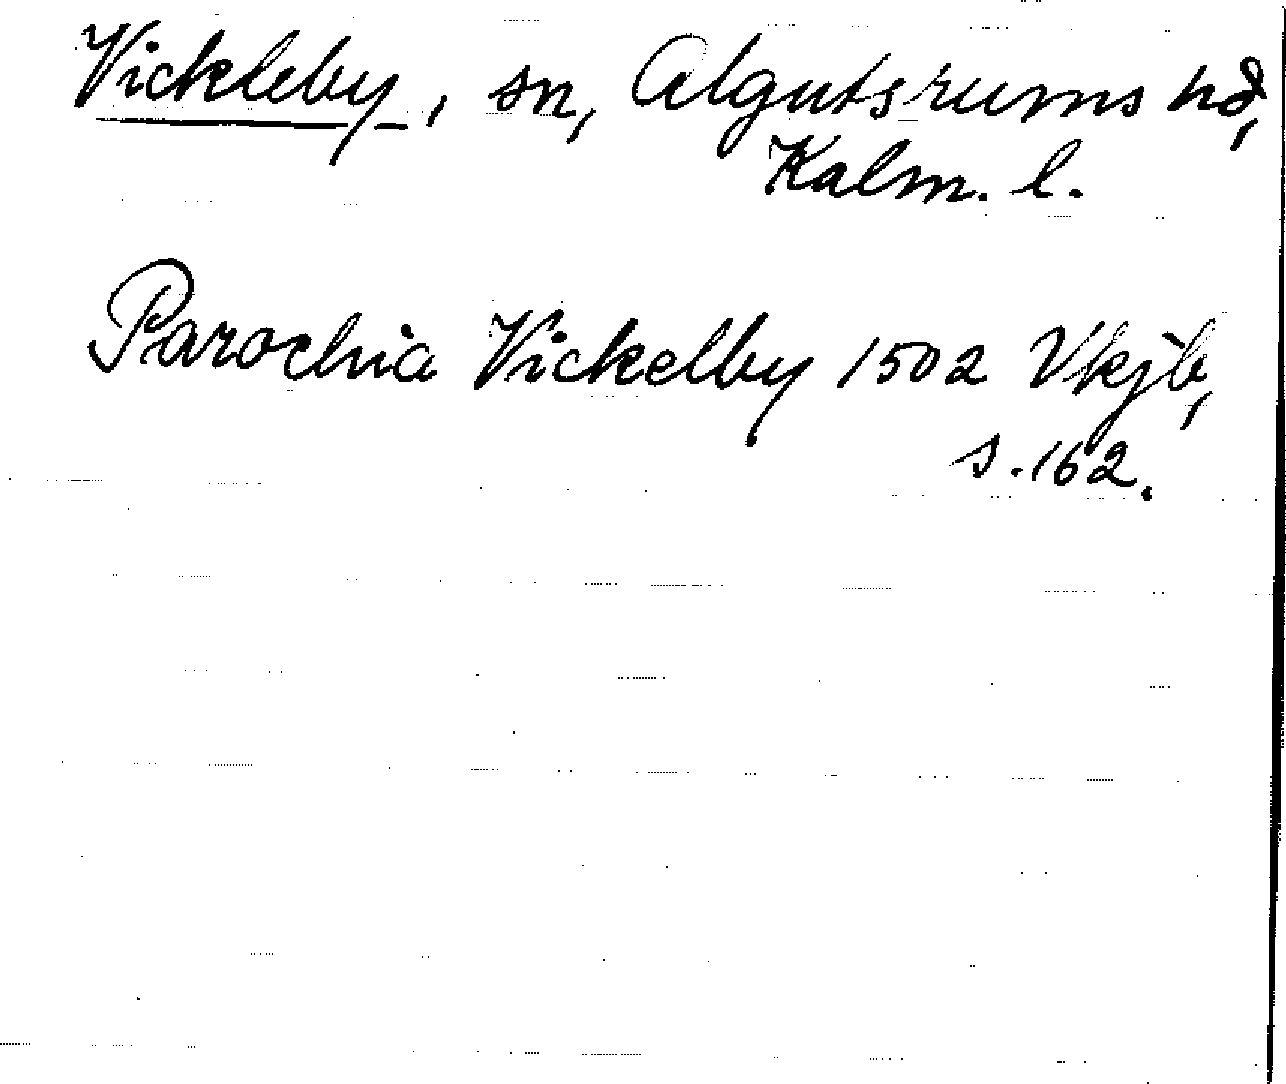 Vickleby, sn, Algutsrums hd,
Kalm. l.
Parochia Vickelby 1502 Vkjb,
s. 162.